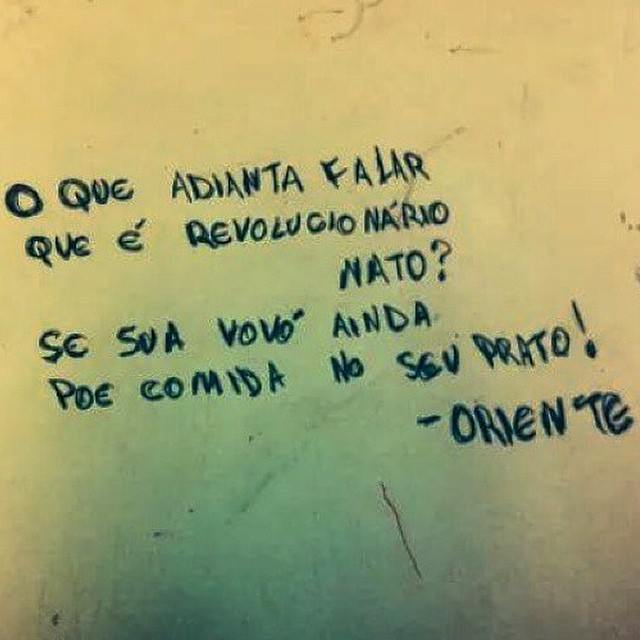 O QUE ADIANTA FALAR
QUE É REVOLUCIONÁRIO
NATO?
SE SUA VOVÓ AINDA
POE COMIDA NO SEU PRATO!
- ORIENTE